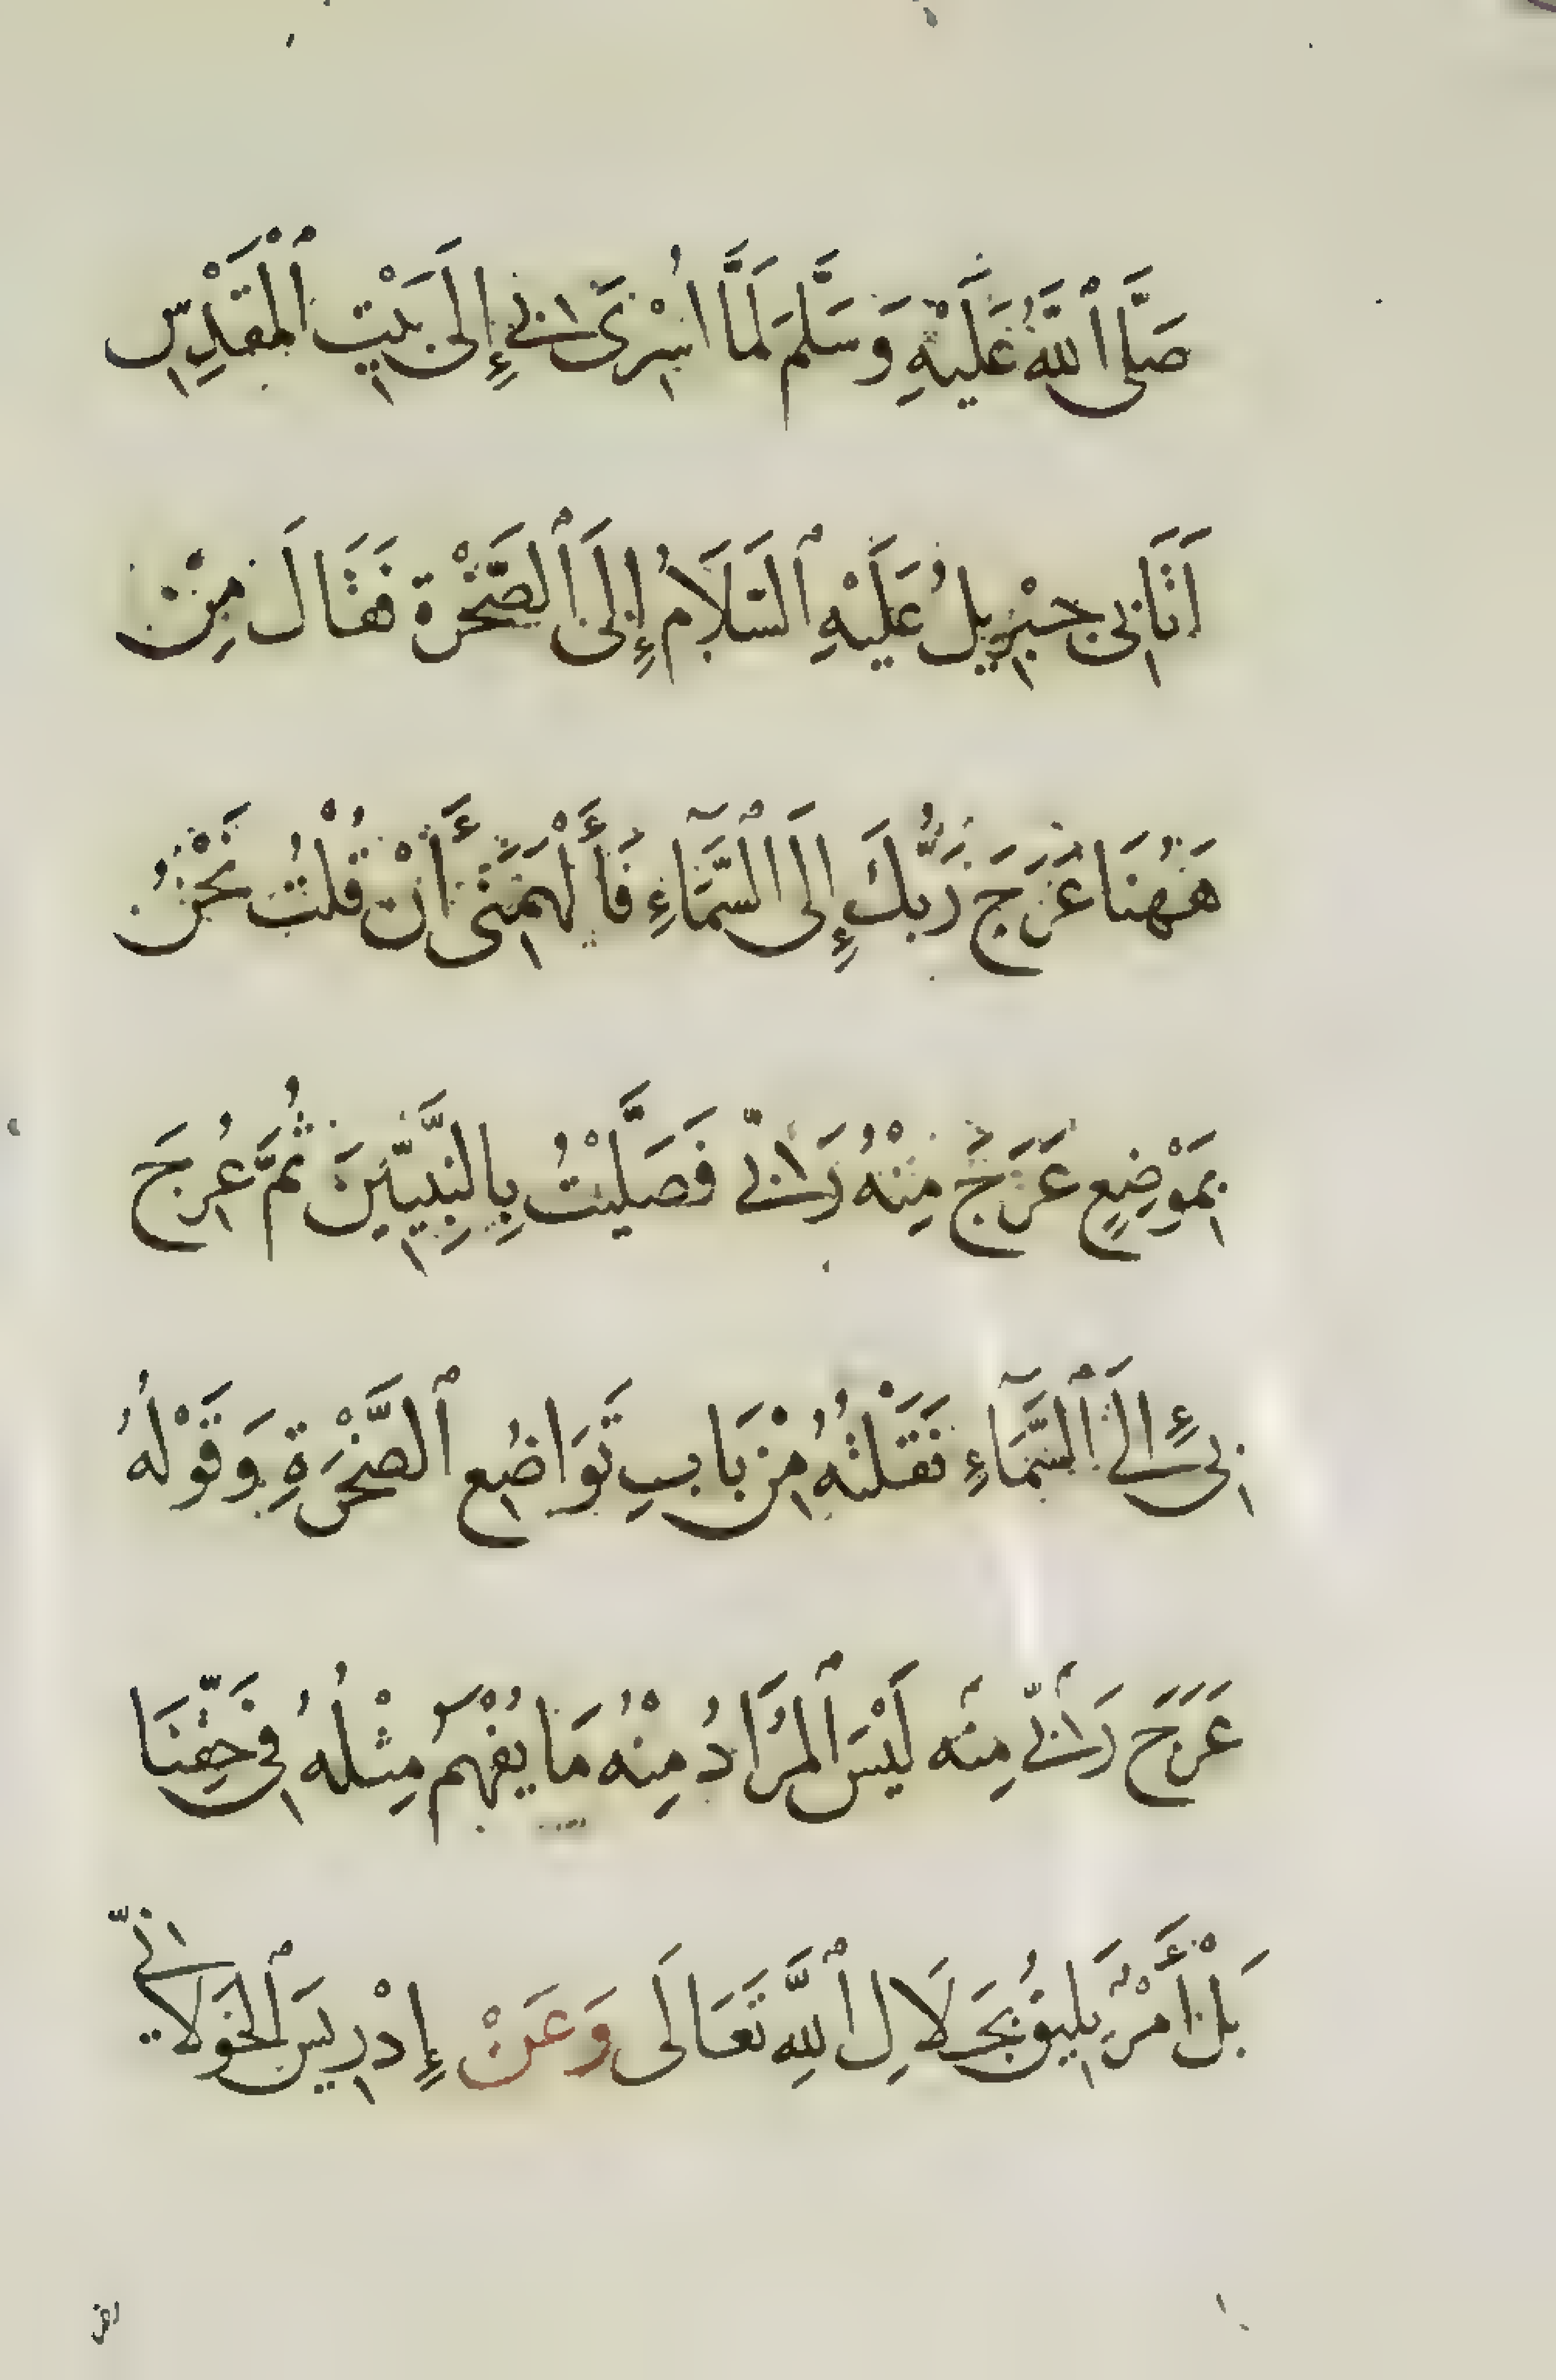 صَلَّى ٱللَّهُ عَلَيْهِ وَسَلَّمَ لَمَّا اُسْرِىَ بِى إِلَى بَيْتِ ٱلْمَقْدِسِ
اَتَانِى جِبْرِيلُ عَلَيْهِ ٱلسَّلَامُ إِلَى ٱلصَّخْرَة فَقَالَ مِنْ
هَهُنَا عَرَجَ رَبُّكَ إِلَى ٱلسَّمَآءِ فَأَلْهَمَنِى أَنْ قُلْتُ نَحْنُ
بِمَوْضِعٍ عَرَجَ مِنْهُ رَبِّى فَصَلَّيْتُ بِالنَّبِيّينَ ثُمَّ عُرِجَ
بِى إِلَى ٱلسَّمَآءِ نَقَلْتُهُ مِنْ بَابِ تَوَاضُعِ ٱلصَّخْرَةِ وَقَوْلُهُ
عَرَجَ رَبِّى مِنْهُ لَيْسَ ٱلْمُرَادُ مِنْهُ مَا يُفْهَمُ مِثْلُهُ فِى حَقِّنَا
بَلْ أَمْرٌ يَلِيقُ بِجَلَالِ ٱللَّهِ تَعَالَى وَعَنْ إِدْرِيسَ ٱلْخَوْلَانِىّ